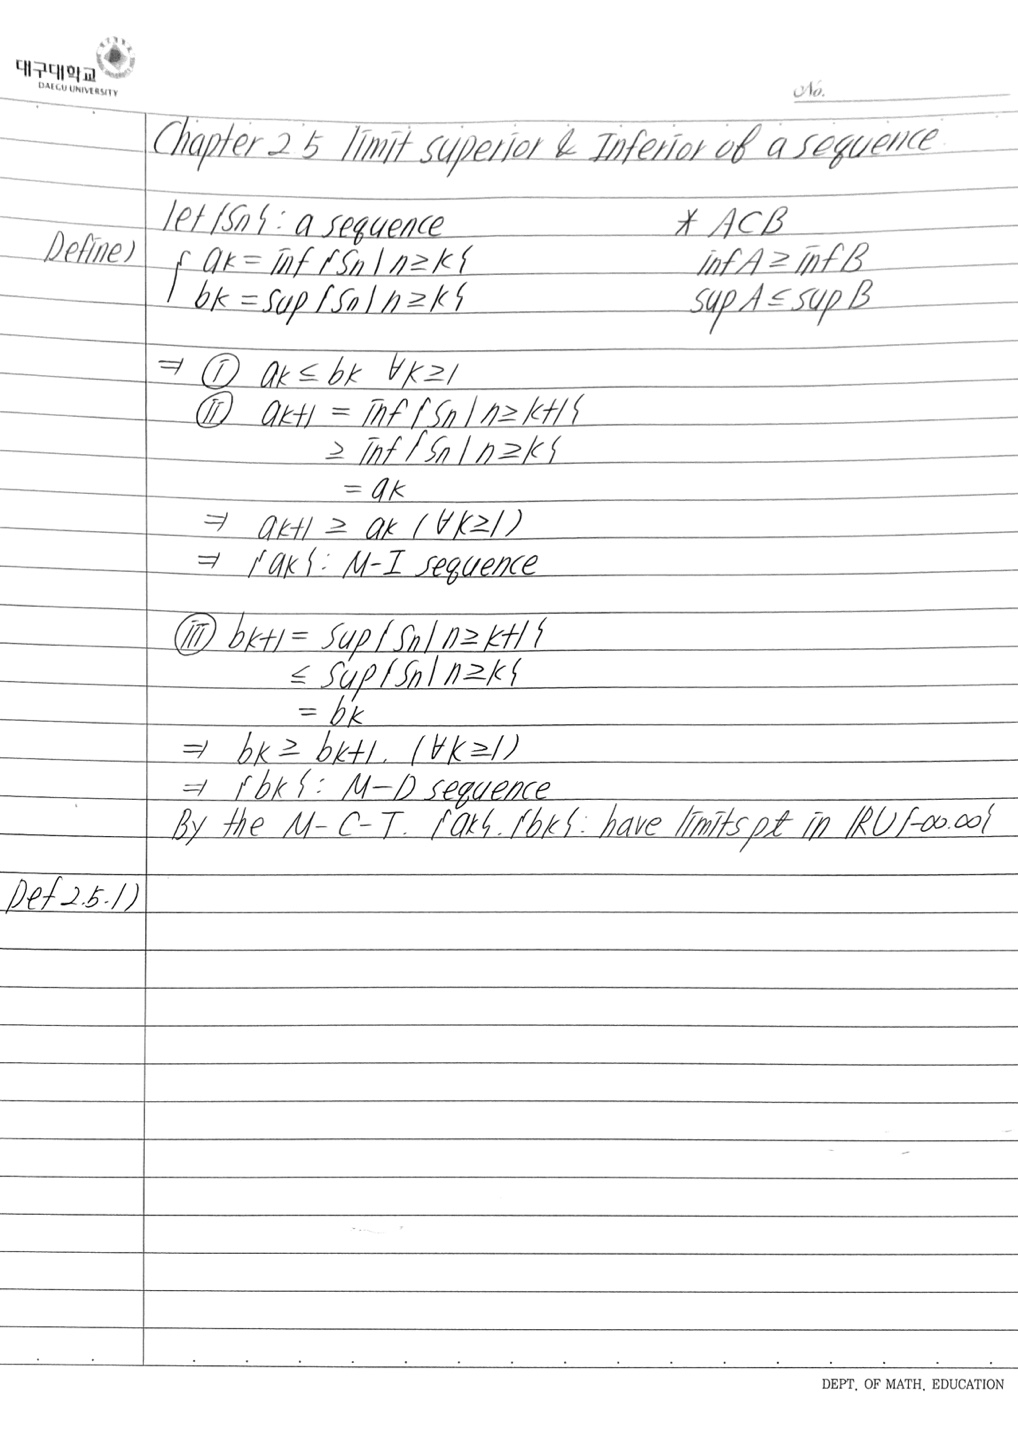 대구대학교
DAEGU UNIVERSITY
No.
Chapter 2 5 limit superior & Inferior of a sequence
let {Sn}: a sequence
* A⊂B
Define)
{ ak = inf {Sn | n≥k}
inf A ≥ inf B
bk = sup {Sn | n≥k}
sup A ≤ sup B
⇒ ⓘ ak ≤ bk ∀k≥1
ⅱ ak+1 = inf {Sn | n≥k+1}
≥ inf {Sn | n≥k}
= ak
⇒ ak+1 ≥ ak (∀k≥1)
⇒ {ak}: M-I sequence
ⅲ bk+1 = sup {Sn | n≥k+1}
≤ sup {Sn | n≥k}
= bk
⇒ bk ≥ bk+1. (∀k≥1)
⇒ {bk}: M-D sequence
By the M-C-T. {ak}. {bk}: have limits pt in ℝ∪{-∞.∞}
Def 2.5.1)
DEPT. OF MATH. EDUCATION